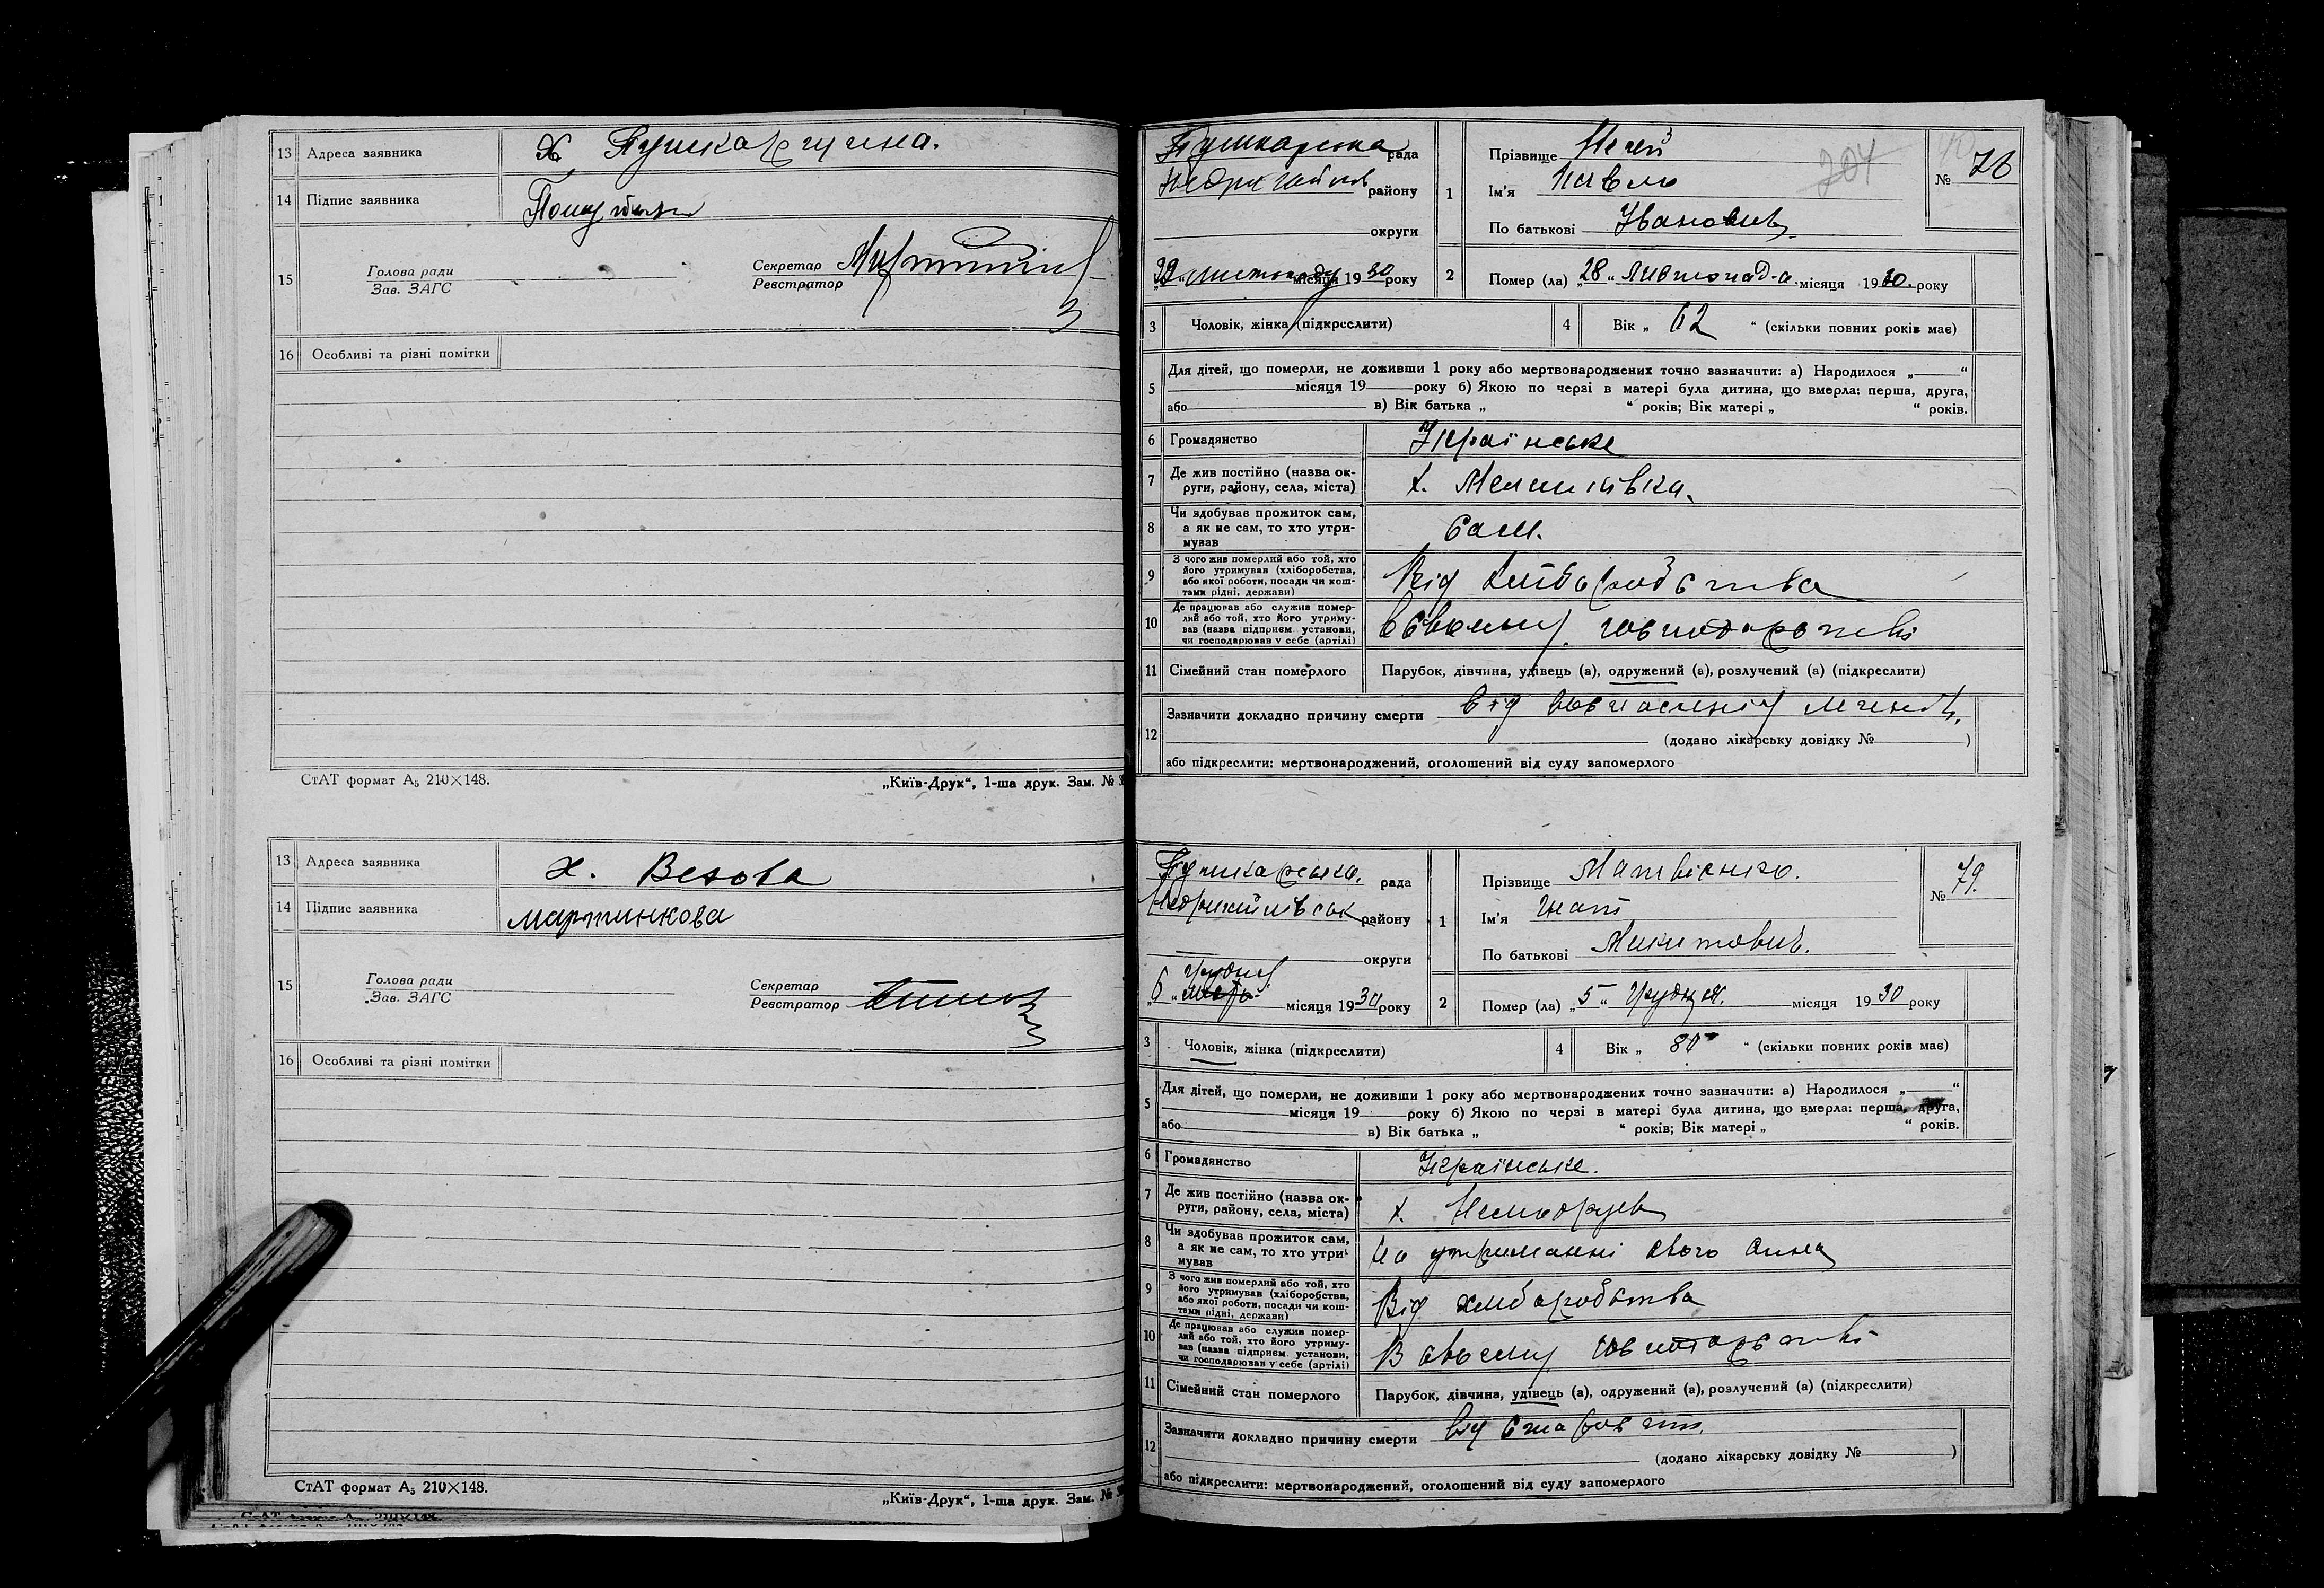 13 Адреса заявника х. Пушкарщина.
14 Підпис заявника
15 Голова ради
Зав. ЗАГС
Секретар
Реєстратор
16 Особливі та різні помітки
СтАТ формат А₅ 210×148.
„Київ-Друк“, 1-ша друк. Зам. №
13 Адреса заявника х. Вехова
14 Підпис заявника мартинкова
15 Голова ради
Зав. ЗАГС
Секретар
Реєстратор
16 Особливі та різні помітки
СтАТ формат А₅ 210×148.
„Київ-Друк“, 1-ша друк. Зам. №
Пушкарська рада
району
округи
листопаду місяця 1930 року
1 Прізвище
Ім'я Павло
По батькові Іванович
204
№ 78
2 Помер (ла) „28“ Листопад-а місяця 1930 року
3 Чоловік, жінка (підкреслити)
4 Вік „ 62 “ (скільки повних років має)
5 Для дітей, що померли, не доживши 1 року або мертвонароджених точно зазначити: а) Народилося „ “
місяця 19 року б) Якою по черзі в матері була дитина, що вмерла: перша, друга,
або в) Вік батька „ “ років; Вік матері „ “ років.
6 Громадянство Українське
7 Де жив постійно (назва ок-
руги, району, села, міста) х.
8 Чи здобував прожиток сам,
а як не сам, то хто утри-
мував Сам.
9 З чого жив померлий або той, хто
його утримував (хліборобства,
або якої роботи, посади чи кош-
тами рідні, держави) Від хліборобства
10 Де працював або служив помер-
лий або той, хто його утриму-
вав (назва підприєм. установи,
чи господарював у себе (артілі) в своєму господарстві
11 Сімейний стан померлого Парубок, дівчина, удівець (а), одружений (а), розлучений (а) (підкреслити)
12 Зазначити докладно причину смерти від
(додано лікарську довідку № )
або підкреслити: мертвонароджений, оголошений від суду запомерлого
Пушкарська рада
району
округи
„6“ Грудня місяця 1930 року
1 Прізвище Матвієнко.
Ім'я Гнат
По батькові Микитович.
№ 79.
2 Помер (ла) „5“ Грудня місяця 1930 року
3 Чоловік, жінка (підкреслити)
4 Вік „ 80 “ (скільки повних років має)
5 Для дітей, що померли, не доживши 1 року або мертвонароджених точно зазначити: а) Народилося „ “
місяця 19 року б) Якою по черзі в матері була дитина, що вмерла: перша, друга,
або в) Вік батька „ “ років; Вік матері „ “ років.
6 Громадянство Українське.
7 Де жив постійно (назва ок-
руги, району, села, міста) х.
8 Чи здобував прожиток сам,
а як не сам, то хто утри-
мував На утриманні свого сина
9 З чого жив померлий або той, хто
його утримував (хліборобства,
або якої роботи, посади чи кош-
тами рідні, держави) Від хліборобства
10 Де працював або служив помер-
лий або той, хто його утриму-
вав (назва підприєм. установи,
чи господарював у себе (артілі) В своєму господарстві
11 Сімейний стан померлого Парубок, дівчина, удівець (а), одружений (а), розлучений (а) (підкреслити)
12 Зазначити докладно причину смерти від старости.
(додано лікарську довідку № )
або підкреслити: мертвонароджений, оголошений від суду запомерлого